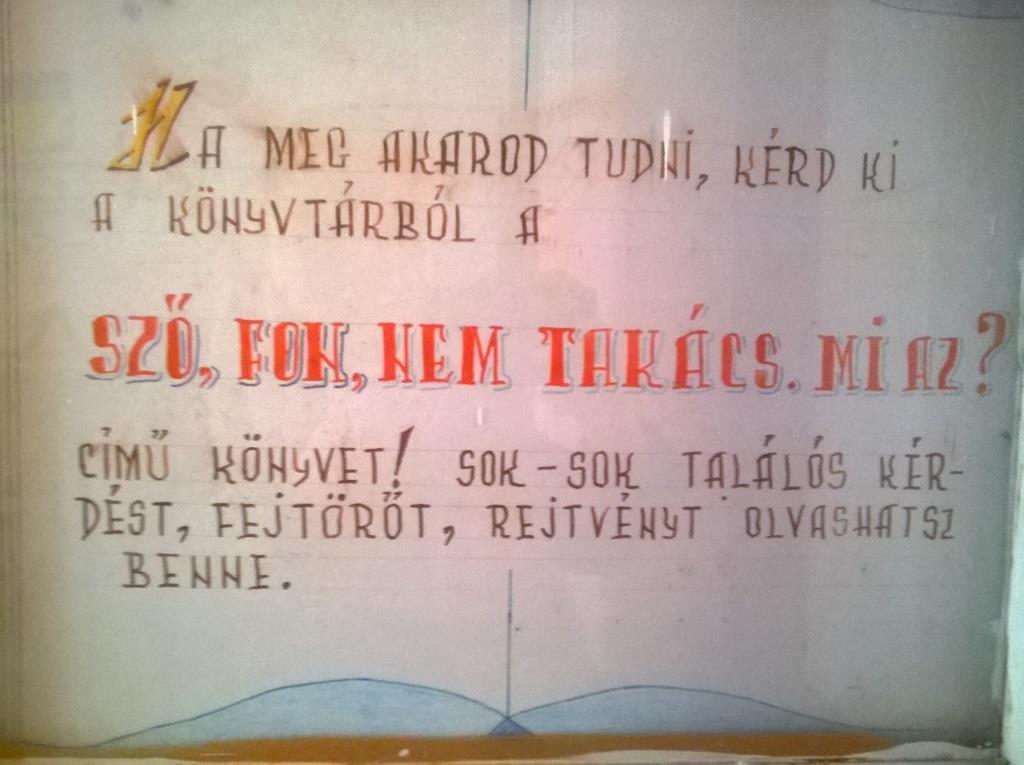 HA MEG AKAROD TUDNI, KÉRD KI
A KÖNYVTÁRBÓL A
SZŐ, FON, NEM TAKÁCS. MI AZ?
CÍMŰ KÖNYVET! SOK-SOK TALÁLÓS KÉR-
DÉST, FEJTÖRŐT, REJTVÉNYT OLVASHATSZ
BENNE.